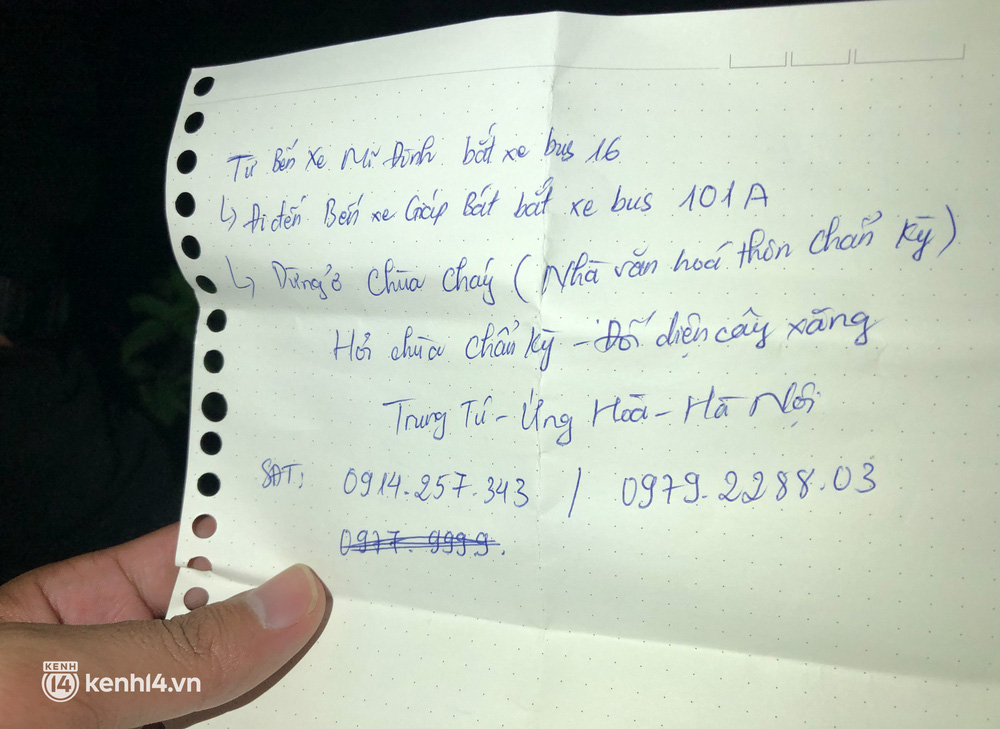 Từ Bến Xe Mĩ Đình bắt xe bus 16
↳ Đi đến Bến xe Giáp Bát bắt xe bus 101A
↳ Dừng ở Chùa Cháy (Nhà văn hoá thôn Chẩn Kỳ)
Hỏi chùa Chẩn Kỳ - Đối diện cây xăng
Trung Tú - Ứng Hoà - Hà Nội
SĐT: 0914.257.343 / 0979.2288.03
0977.9999.
KENH 14 kenh14.vn